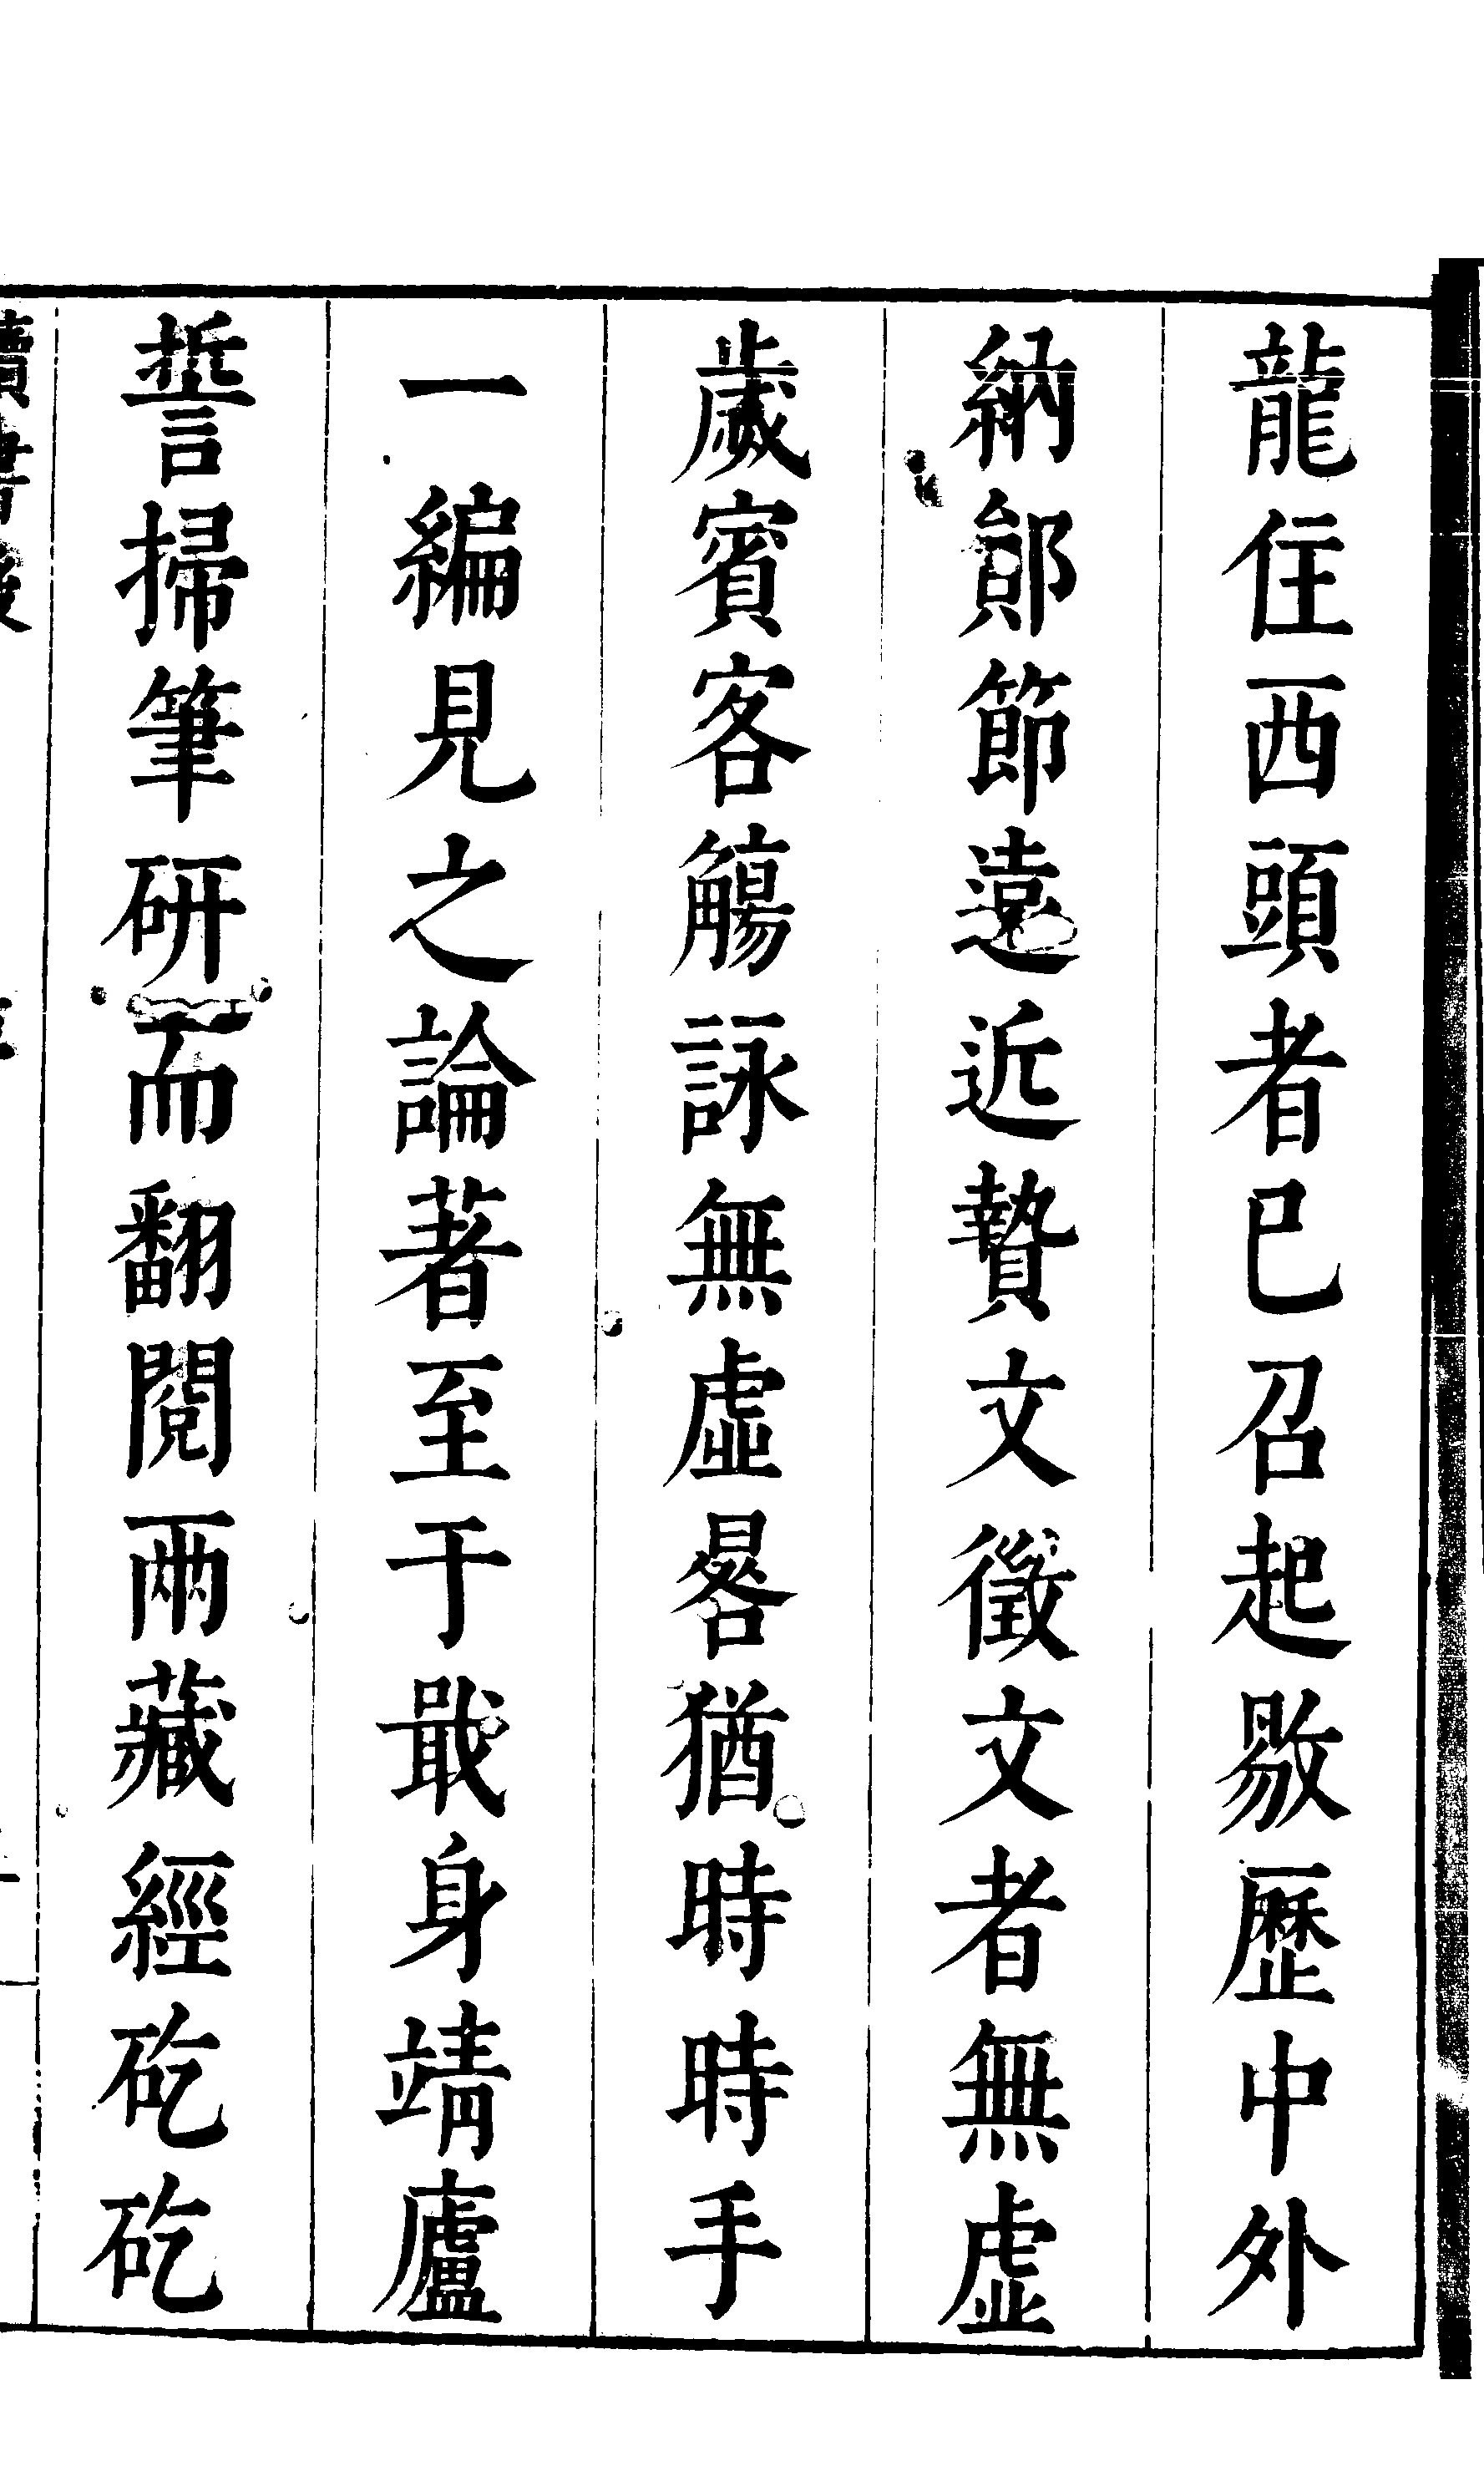 龍住西頭者已召起敭歷中外
納郎節遠近贄文徵文者無虛
歲賓客觴詠無虛晷猶時時手
一編見之論著至于戢身靖廬
誓掃筆研而翻閱兩藏經矻矻
讀書後